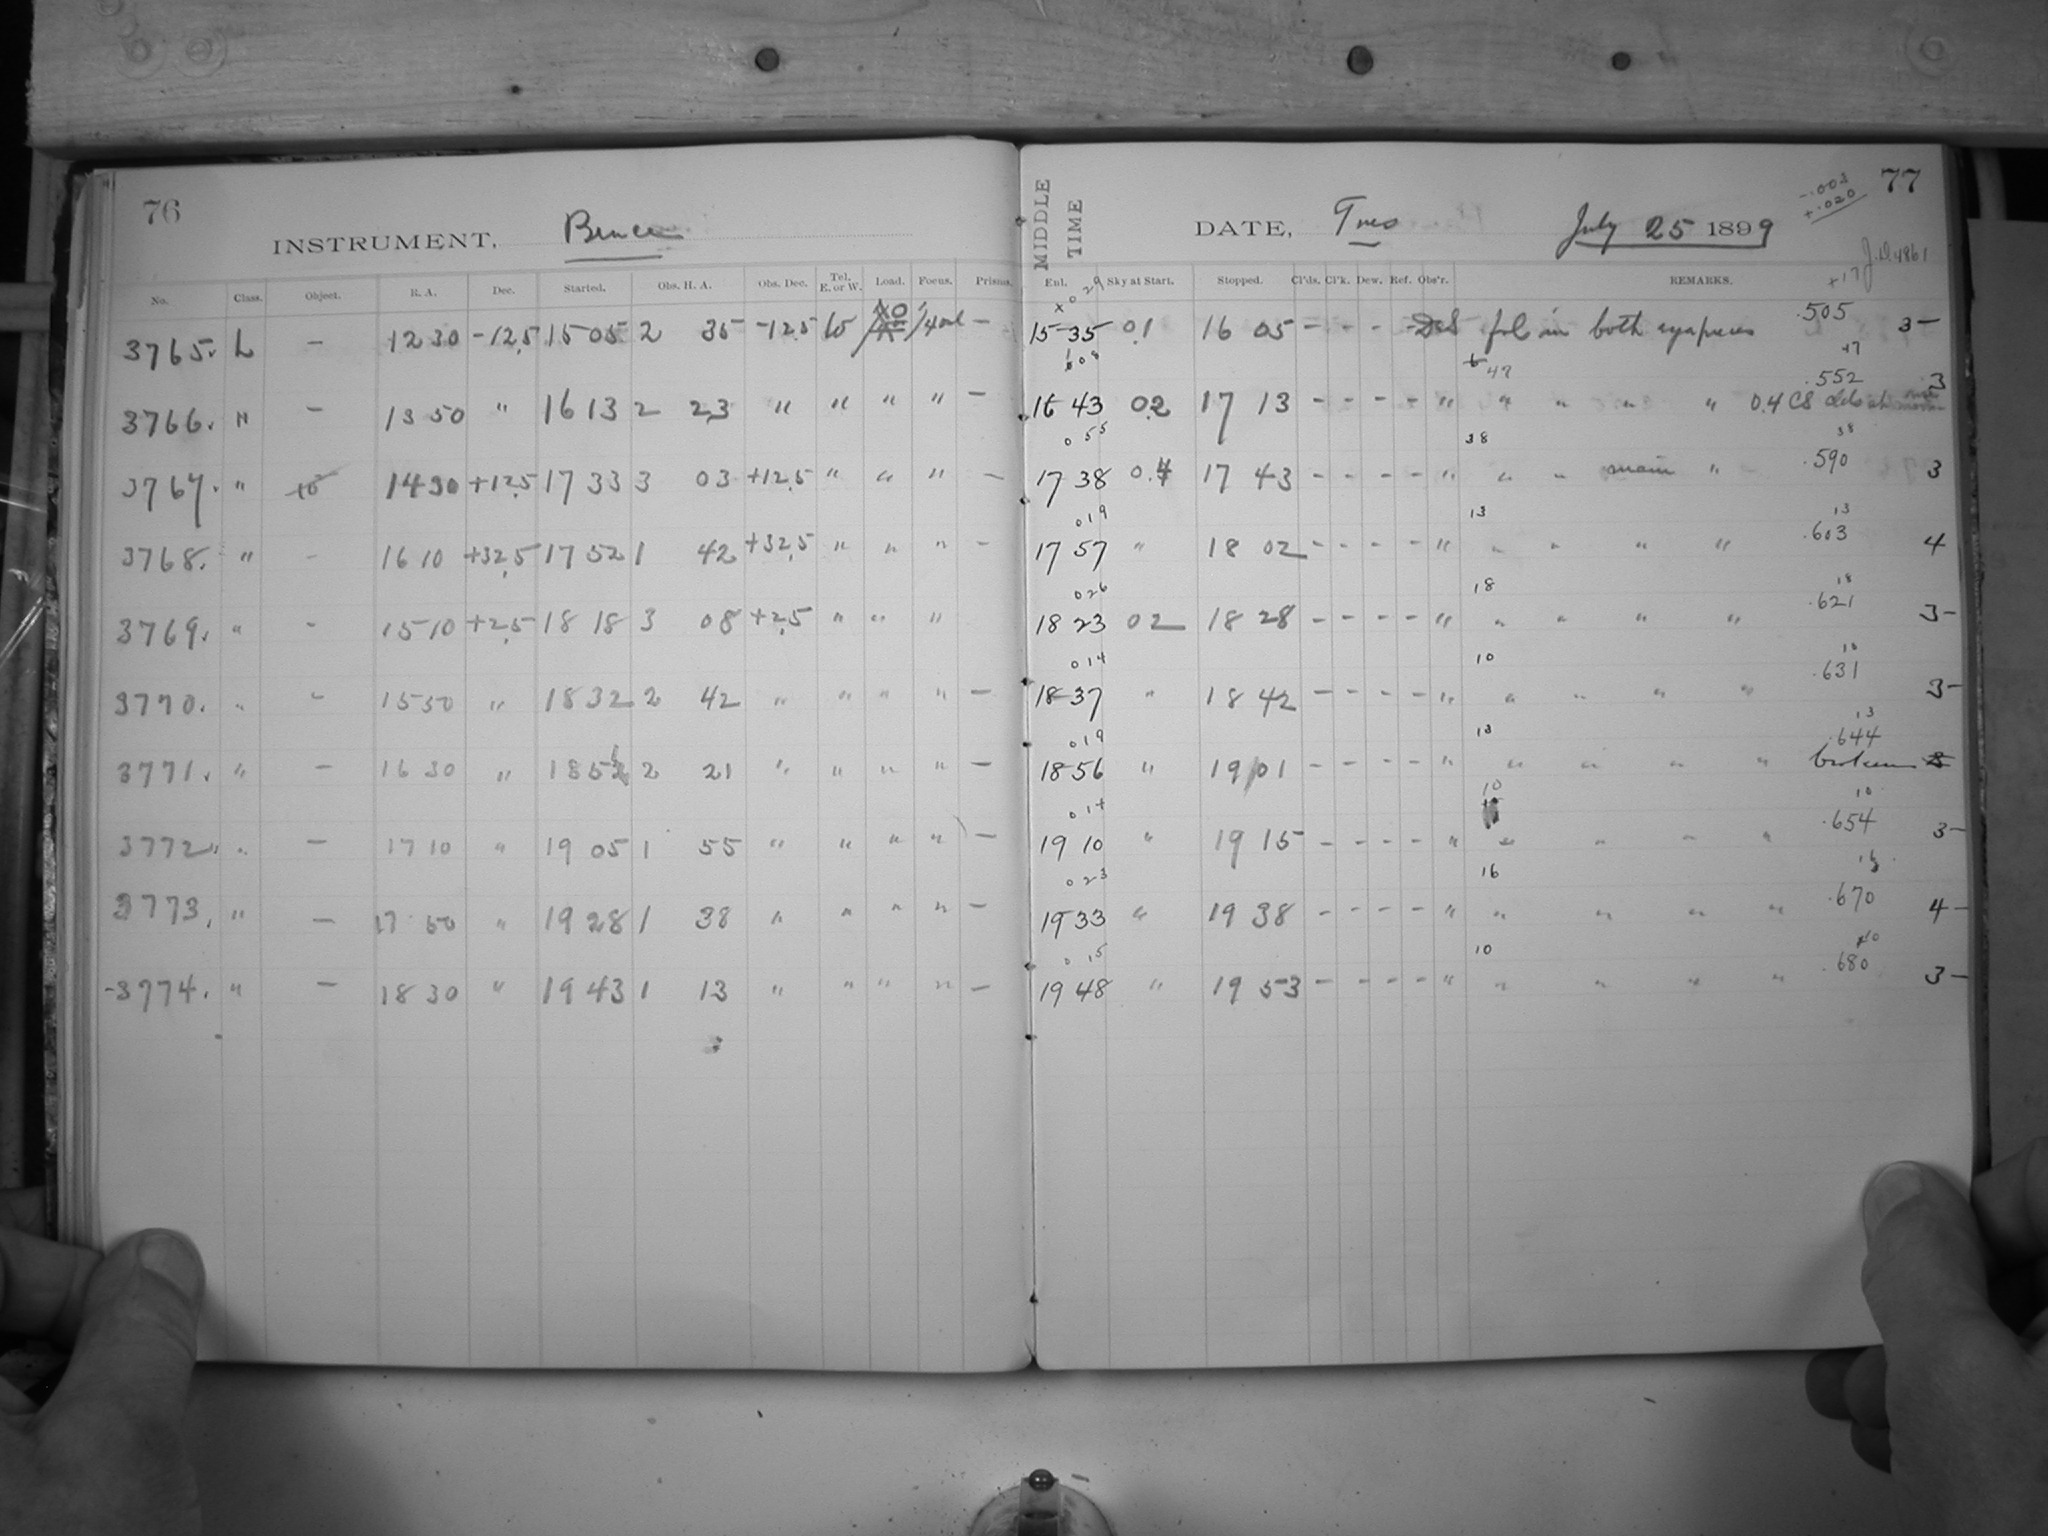 76
INSTRUMENT, Bruce
MIDDLE TIME
DATE, Tues July 25 1899
77
-.003
+.020
J.D. 4861
+17
No. Class. Object. R. A. Dec. Started. Obs. H. A. Obs. Dec. Tel. E. or W. Load. Focus. Prisms. Enl. Sky at Start. Stopped. Cl'ds. Cl'k. Dew. Ref. Obs'r. REMARKS.
3765. L – 12 30 -12.5 15 05 2 35 -12.5 W – 15 35 0.1 16 05 – – – – fol in both eyepieces .505 3–
1 08 47 47
3766. " – 13 50 " 16 13 2 23 " " " " – 16 43 0.2 17 13 – – – – " " " " " 0.4 CS .552 3
0 55 38 38
3767. " 14 30 +12.5 17 33 3 03 +12.5 " " " – 17 38 0.4 17 43 – – – – " " " main " .590 3
019 13 13
3768. " – 16 10 +32.5 17 52 1 42 +32.5 " " " – 17 57 " 18 02 – – – – " " " " " .603 4
026 18 18
3769. " – 15 10 +2.5 18 18 3 08 +2.5 " " " 18 23 02 18 28 – – – – " " " " " .621 3–
014 10 10
3770. " – 15 50 " 18 32 2 42 " " " " – 18 37 " 18 42 – – – – " " " " " .631 3–
019 13 13
3771. " – 16 30 " 18 51 2 21 " " " " – 18 56 " 19 01 – – – – " " " " " .644 broken
014 10 10
3772. " – 17 10 " 19 05 1 55 " " " " – 19 10 " 19 15 – – – – " " " " " .654 3–
023 16 16
3773. " – 17 50 " 19 28 1 38 " " " " – 19 33 " 19 38 – – – – " " " " " .670 4–
015 10 10
3774. " – 18 30 " 19 43 1 13 " " " " – 19 48 " 19 53 – – – – " " " " " .680 3–